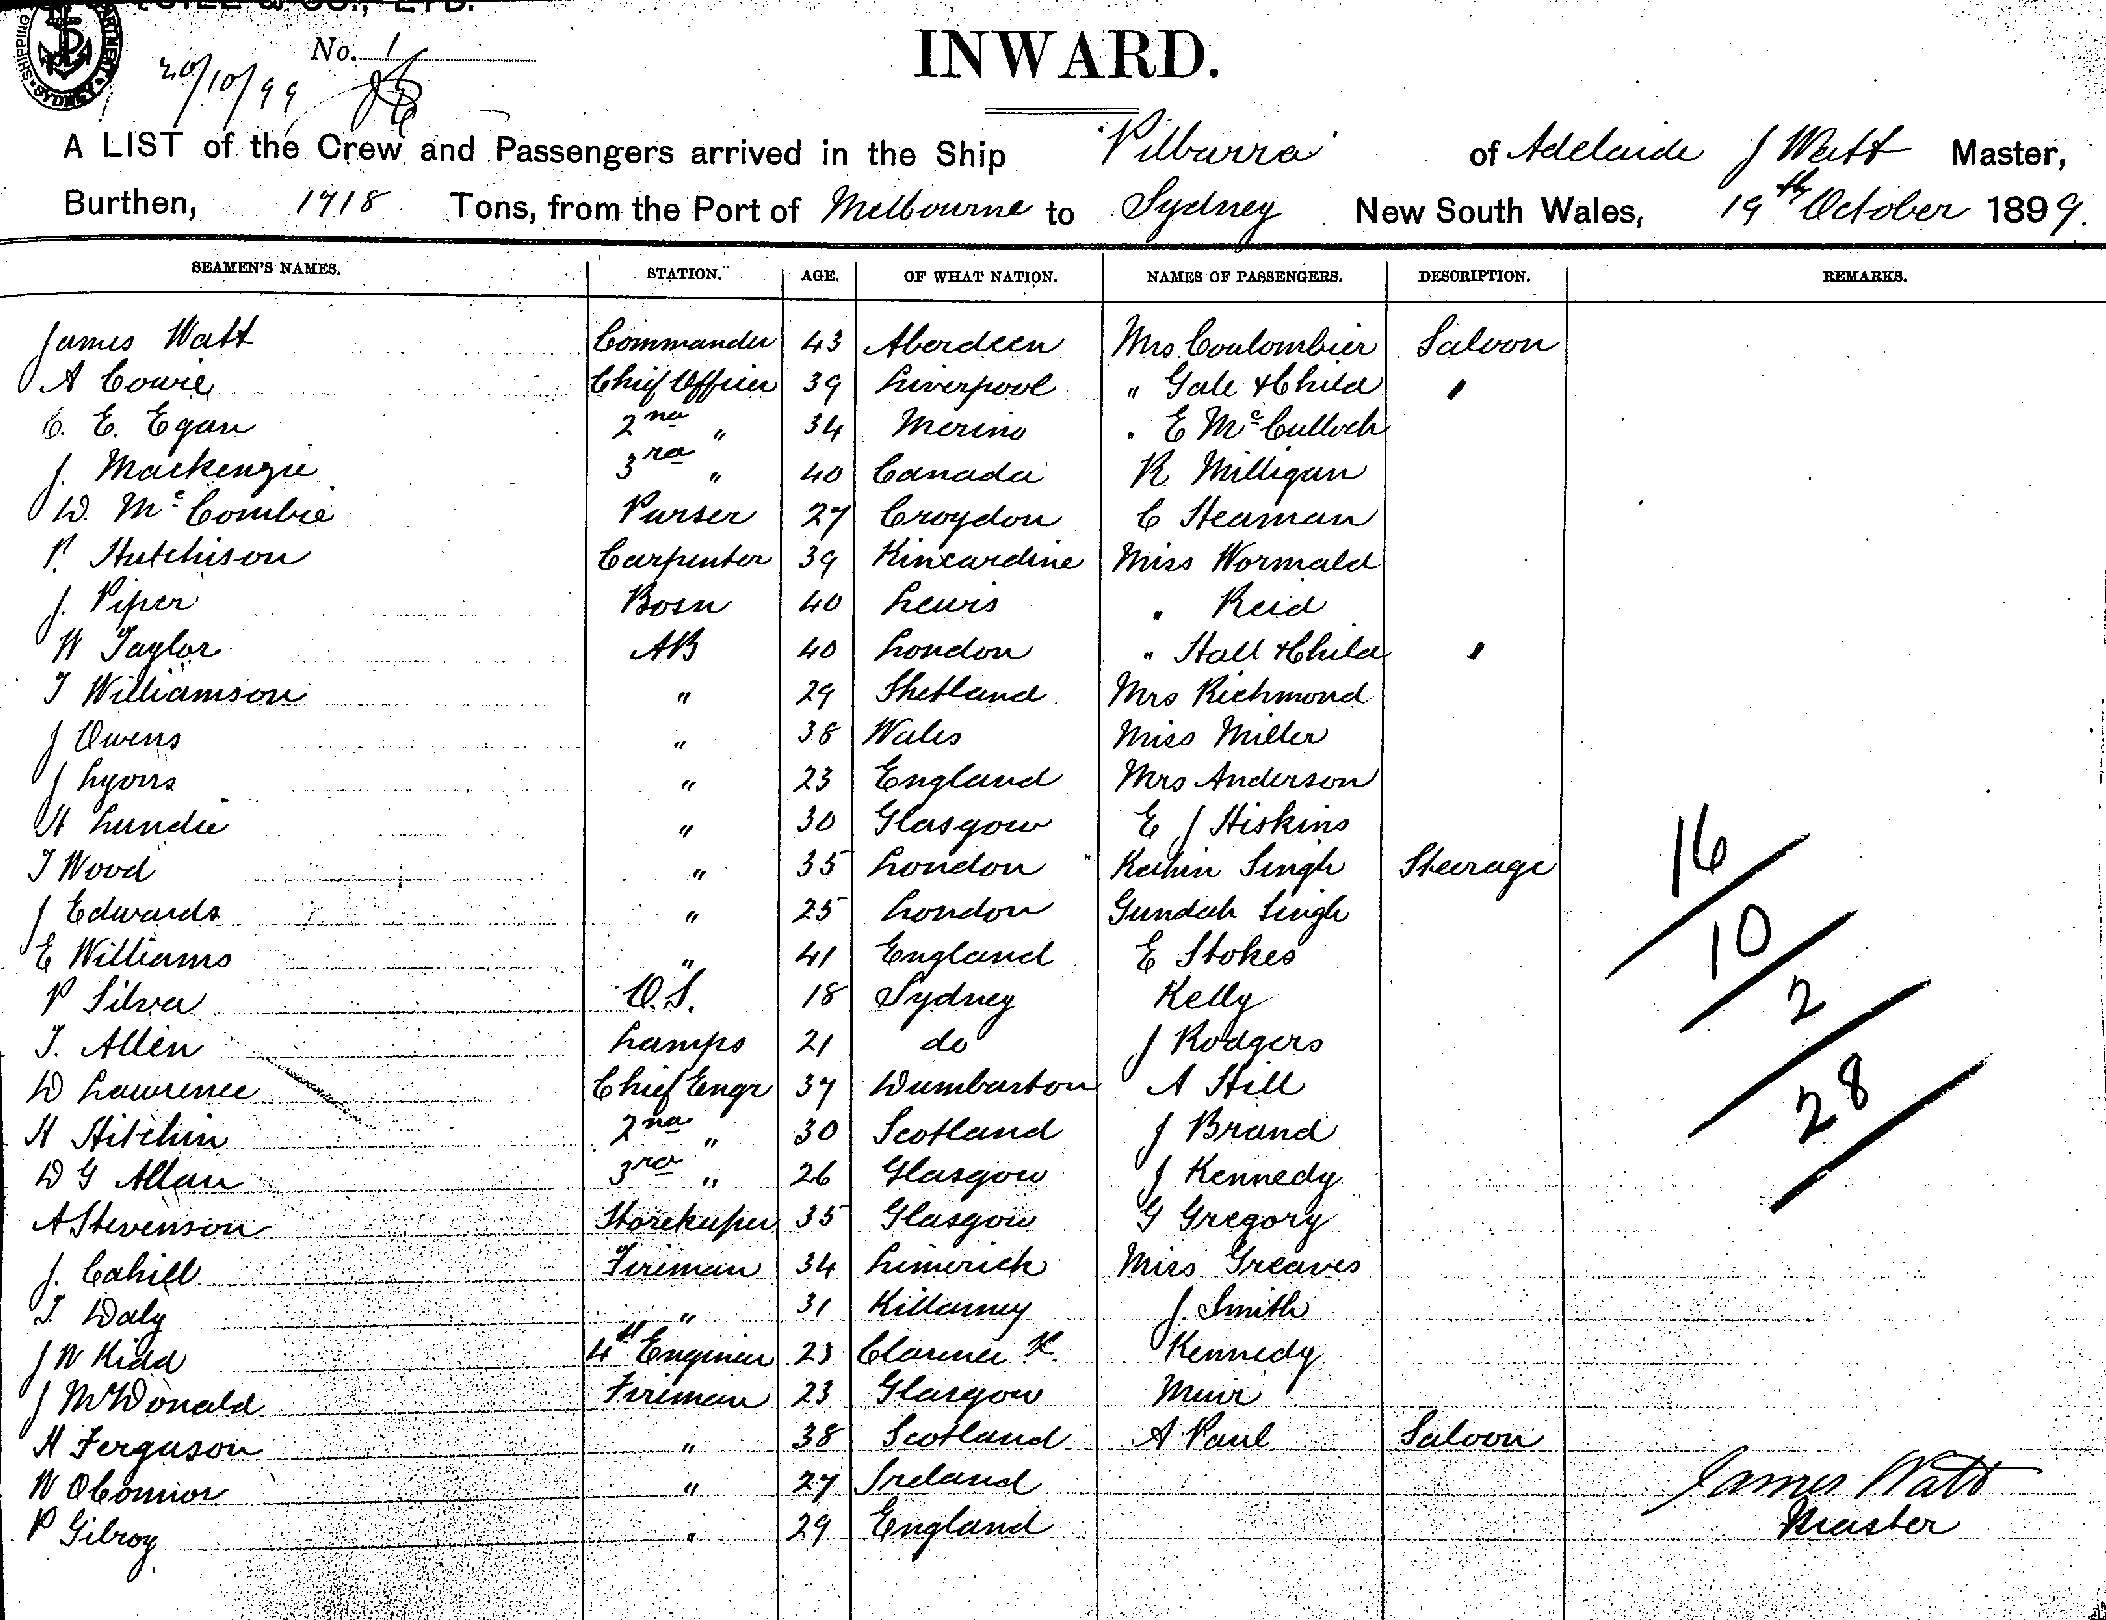 & CO., LTD.
SHIPPING DEPARTMENT SYDNEY
No. 1
20/10/99
INWARD.
A LIST of the Crew and Passengers arrived in the Ship "Pilbarra" of Adelaide J Watt Master,
Burthen, 1918 Tons, from the Port of Melbourne to Sydney New South Wales, 19th October 1899.
SEAMEN'S NAMES. STATION. AGE. OF WHAT NATION. NAMES OF PASSENGERS. DESCRIPTION. REMARKS.
James Watt Commander 43 Aberdeen Mrs Coulombier Saloon
A Cowie Chief Officer 39 Liverpool " Gale & Child "
C. E. Egan 2nd " 34 Merino " E McCulloch
J. Mackenzie 3rd " 40 Canada R Milligan
W. McCombie Purser 27 Croydon C Heaman
P. Hutchison Carpenter 39 Kincardine Miss Wormald
J. Piper Bosn 40 Lewis " Reid
W Taylor AB 40 London " Hall & Child "
T Williamson " 29 Shetland Mrs Richmond
J Owens " 38 Wales Miss Miller
J Lyons " 23 England Mrs Anderson
H Lundie " 30 Glasgow E J Hiskins
T Wood " 35 London Singh Steerage
J Edwards " 25 London Gundah Singh
E Williams " 41 England E Stokes
P Silva O.S. 18 Sydney Kelly
T. Allen Lamps 21 do J Rodgers
D Lawrence Chief Engr 37 Dumbarton A Hill
H Hitchin 2nd " 30 Scotland J Brand
D G Allan 3rd " 26 Glasgow J Kennedy
A Stevenson Storekeeper 35 Glasgow G Gregory
J. Cahill Fireman 34 Limerick Miss Greaves
T. Daly " 31 Killarney J. Smith
J W Kidd 4th Engineer 23 Clarence R. Kennedy
J McDonald Fireman 23 Glasgow Muir
H Ferguson " 38 Scotland A Paul Saloon
W OConnor " 27 Ireland
P Gilroy " 29 England
16
10
2
28
James Watt
Master